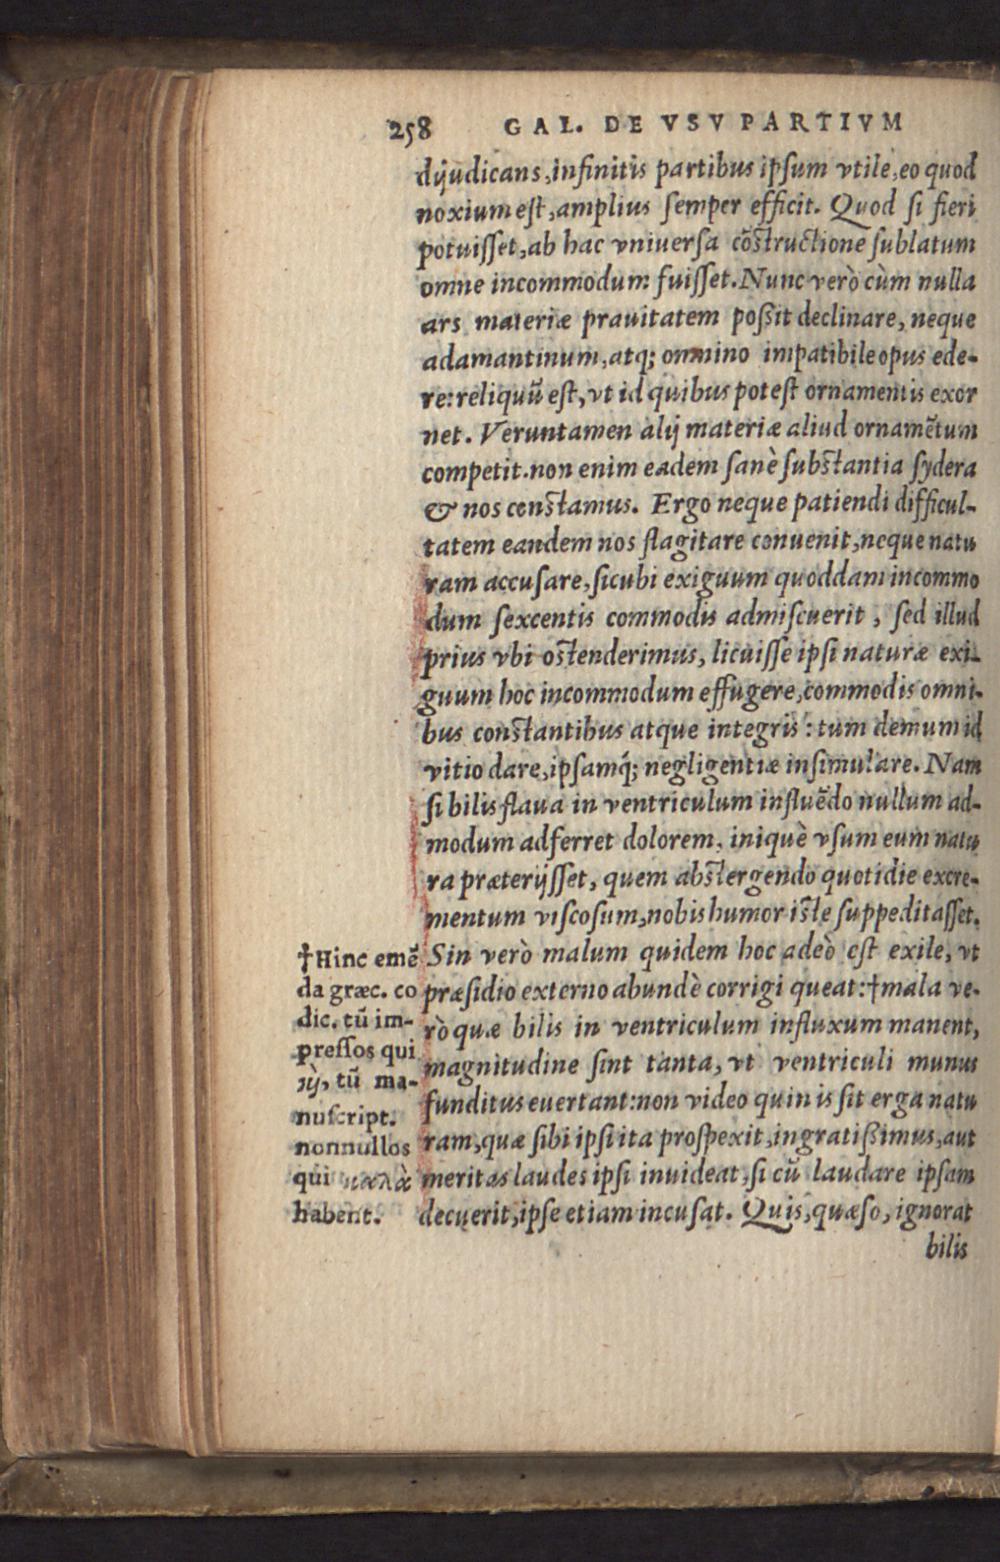 258 GAL. DE VSV PARTIVM
dijudicans, infinitis partibus ipsum vtile, eo quod
noxium est, amplius semper efficit. Quod si fieri
potuisset, ab hac vniuersa cõstructione sublatum
omne incommodum fuisset. Nunc verò cùm nulla
ars materiæ prauitatem possit declinare, neque
adamantinum, atq; omnino impatibile opus ede-
re: reliquũ est, vt id quibus potest ornamentis exor
net. Veruntamen alij materiæ aliud ornamẽtum
competit. non enim eadem sanè substantia sydera
& nos constamus. Ergo neque patiendi difficul-
tatem eandem nos flagitare conuenit, neque natu
ram accusare, sicubi exiguum quoddam incommo
dum sexcentis commodis admiscuerit, sed illud
prius vbi ostenderimus, licuisse ipsi naturæ exi-
guum hoc incommodum effugere, commodis omni-
bus constantibus atque integris: tum demum id
vitio dare, ipsamq́; negligentiæ insimulare. Nam
si bilis flaua in ventriculum influẽdo nullum ad-
modum adferret dolorem, iniquè vsum eum natu
ra præterijsset, quem abstergendo quotidie excre-
mentum viscosum, nobis humor iste suppeditasset.
Sin verò malum quidem hoc adeò est exile, vt
præsidio externo abundè corrigi queat: †mala ve-
rò quæ bilis in ventriculum influxum manent,
magnitudine sint tanta, vt ventriculi munus
funditus euertant: non video quin is sit erga natu
ram, quæ sibi ipsi ita prospexit, ingratissimus, aut
meritas laudes ipsi inuideat, si cũ laudare ipsam
decuerit, ipse etiam incusat. Quis, quæso, ignorat
bilis
†Hinc emẽ
da græc. co
dic. tũ im-
pressos qui
, tũ ma-
nuscript.
nonnullos
qui καλὰ
habent.